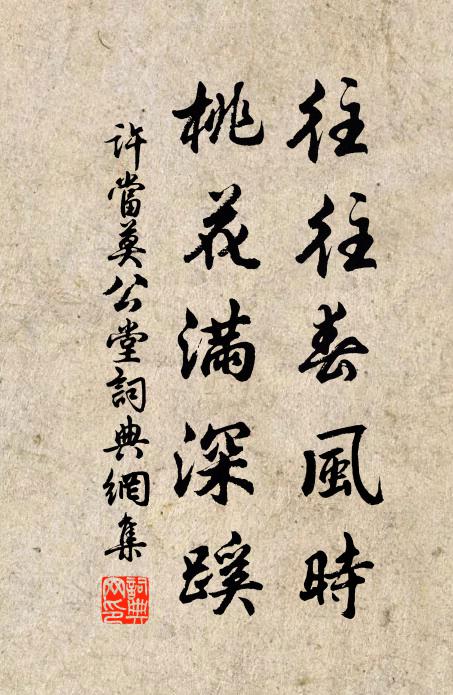 往往春風時
桃花滿深蹊
許當莫公堂詞典網集
詞典網印